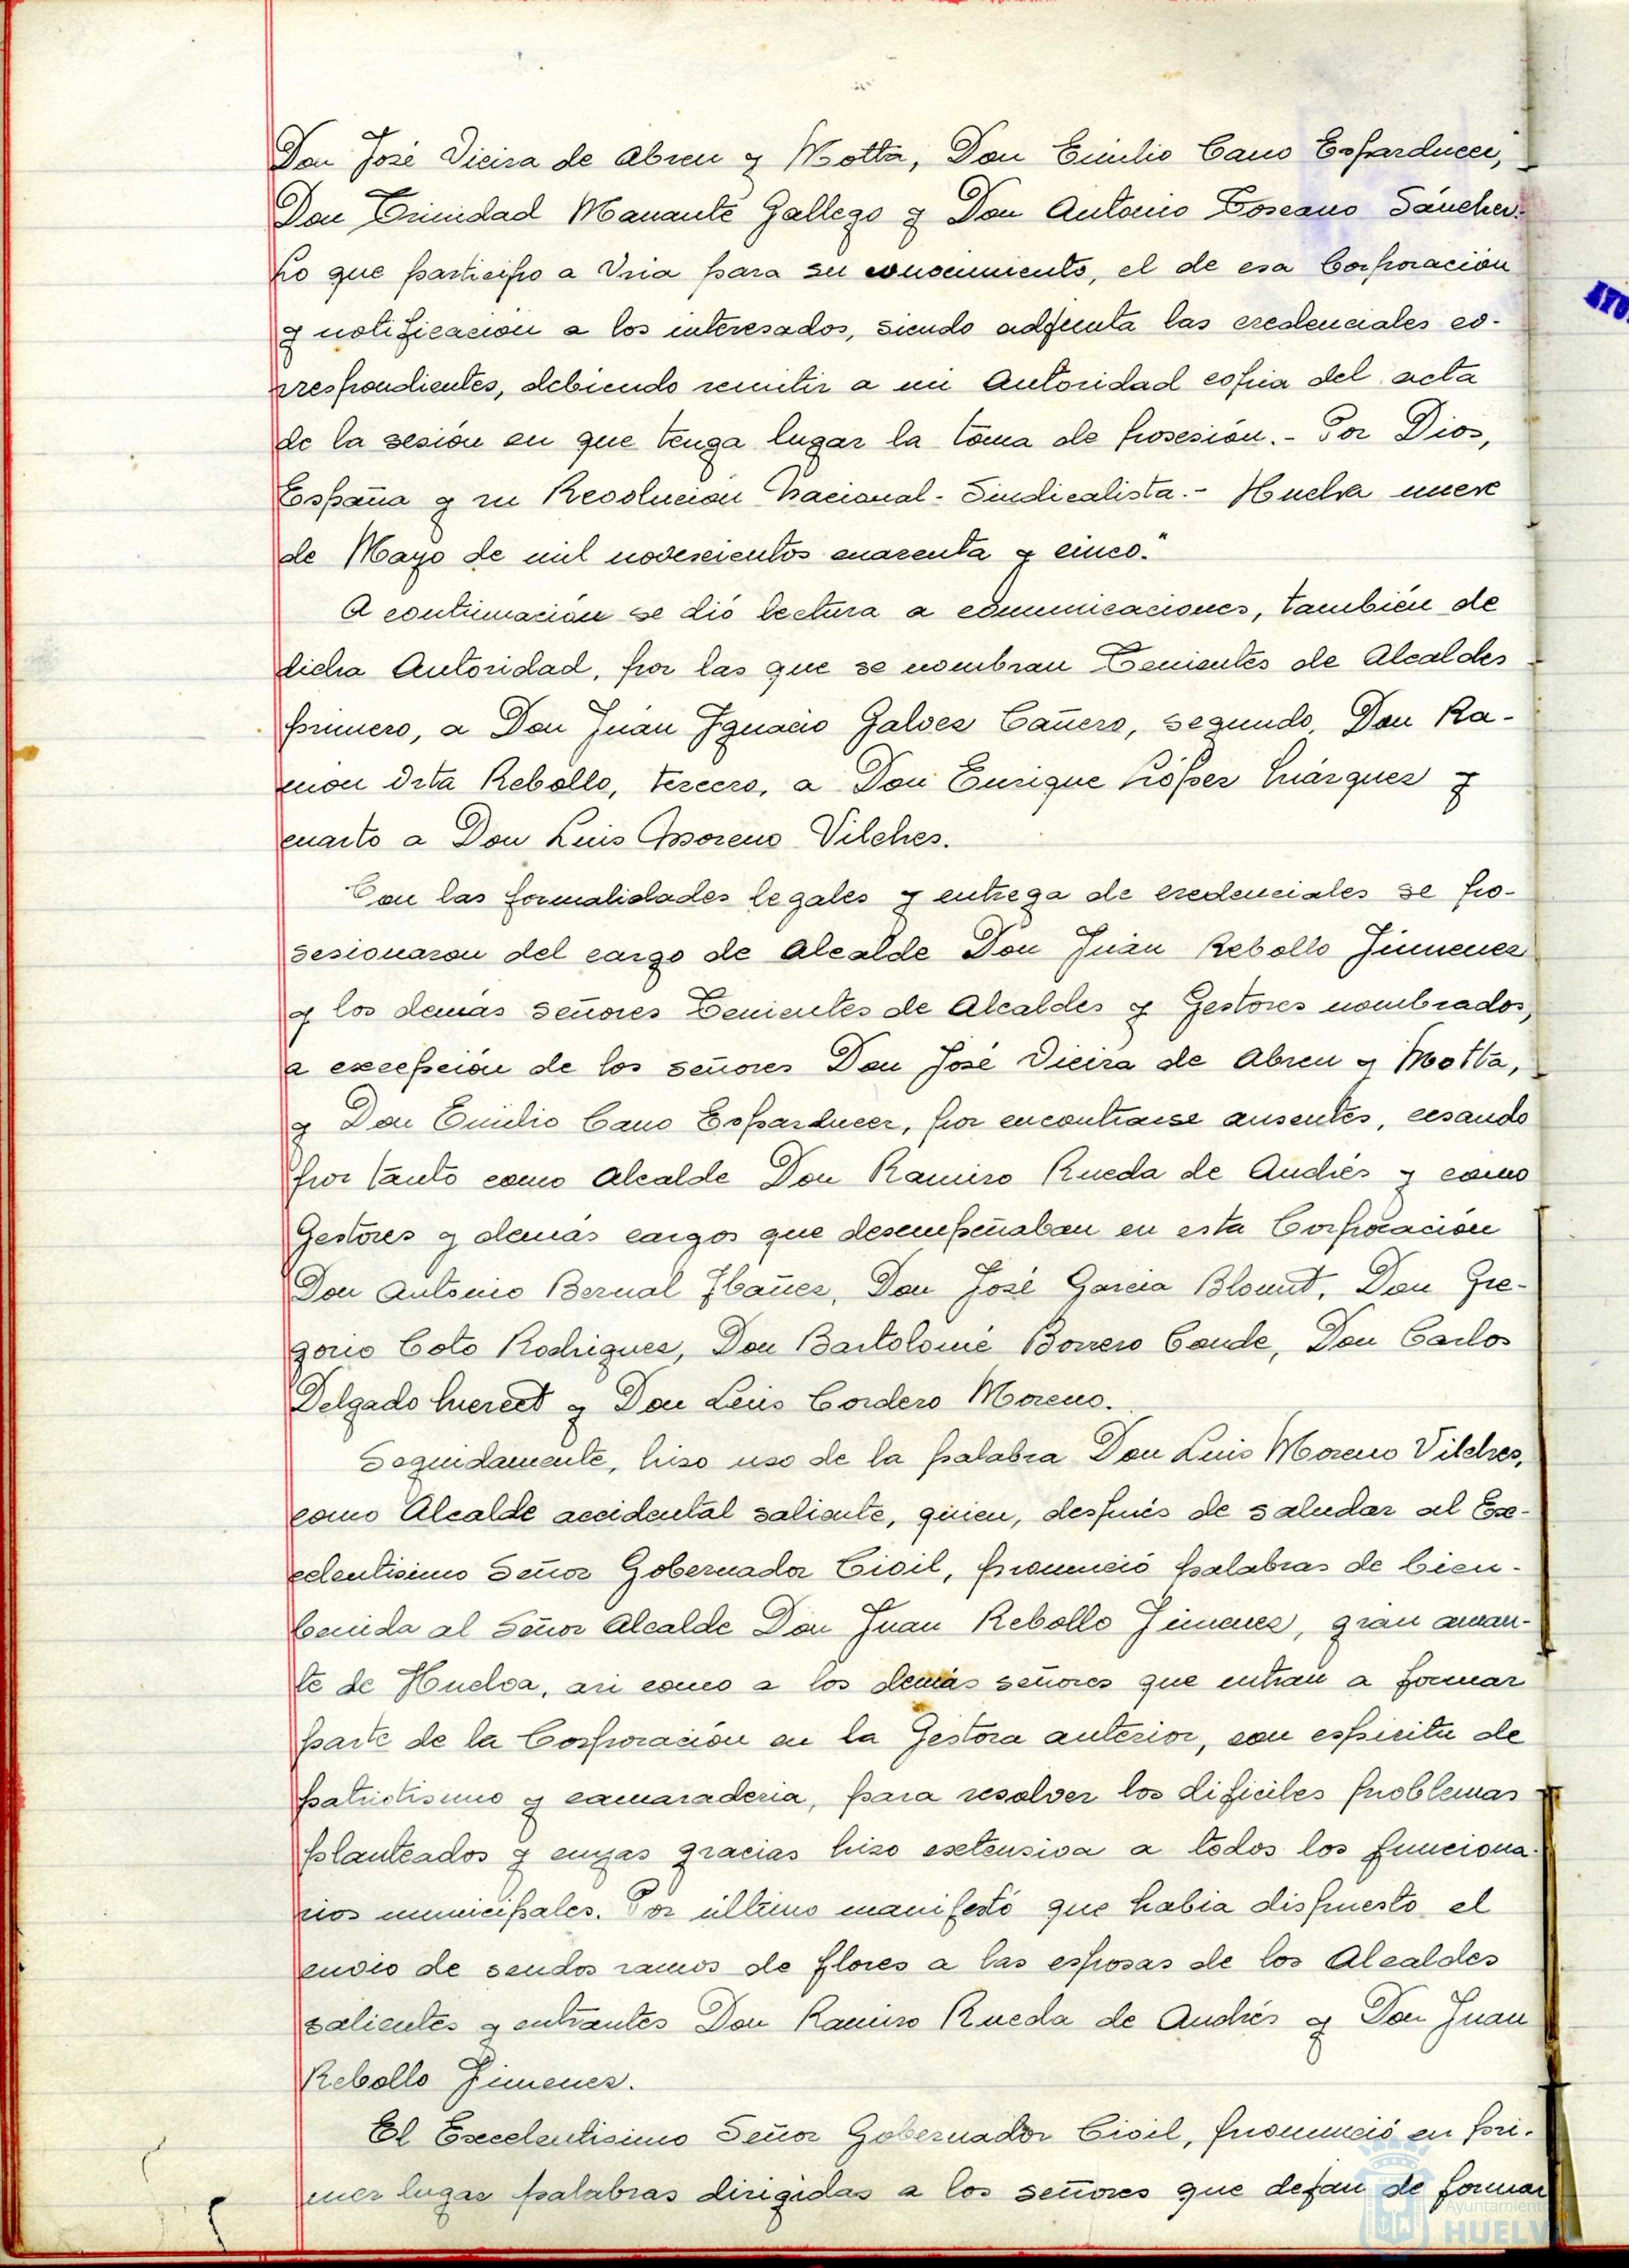 Don José Vieira de Abreu y Motta, Don Emilio Cano Esparducer,
Don Trinidad Manante Gallego y Don Antonio Toscano Sánchez.
Lo que participo a Vsia para su conocimiento, el de esa Corporación
y notificación a los interesados, siendo adjunta las credenciales co-
rrespondientes, debiendo remitir a mi Autoridad copia del acta
de la sesión en que tenga lugar la toma de posesión.- Por Dios,
España y su Revolución Nacional-Sindicalista.- Huelva nueve
de Mayo de mil novescientos cuarenta y cinco."
A continuación se dió lectura a comunicaciones, también de
dicha Autoridad, por las que se nombran Tenientes de Alcaldes
primero, a Don Juan Ignacio Galvez Cañero, segundo, Don Ra-
món Orta Rebollo, tercero, a Don Enrique López Márquez y
cuarto a Don Luis Moreno Vilches.
Con las formalidades legales y entrega de credenciales se po-
sesionaron del cargo de Alcalde Don Juan Rebollo Jimenez
y los demás señores Tenientes de Alcaldes y Gestores nombrados,
a excepción de los señores Don José Vieira de Abreu y Motta,
y Don Emilio Cano Esparducer, por encontrarse ausentes, cesando
por tanto como Alcalde Don Ramiro Rueda de Andrés y como
Gestores y demás cargos que desempeñaban en esta Corporación
Don Antonio Bernal Ibañez, Don José Garcia Blount, Don Gre-
gorio Coto Rodriguez, Don Bartolomé Borrero Conde, Don Carlos
Delgado y Don Luis Cordero Moreno.
Seguidamente, hizo uso de la palabra Don Luis Moreno Vilches,
como Alcalde accidental saliente, quien, después de saludar al Exc-
celentisimo Señor Gobernador Civil, pronunció palabras de bien-
benida al Señor Alcalde Don Juan Rebollo Jimenez, gran aman-
te de Huelva, asi como a los demás señores que entran a formar
parte de la Corporación en la Gestora anterior, con espiritu de
patriotismo y camaraderia, para resolver los dificiles problemas
planteados y cuyas gracias hizo extensiva a todos los funciona-
rios municipales. Por último manifestó que habia dispuesto el
envio de sendos ramos de flores a las esposas de los Alcaldes
salientes y entrantes Don Ramiro Rueda de Andrés y Don Juan
Rebollo Jimenez.
El Excelentisimo Señor Gobernador Civil, pronunció en pri-
mer lugar palabras dirigidas a los señores que dejan de formar
Ayuntamiento
HUELVA